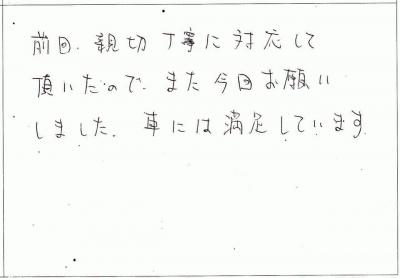 前回、親切丁寧に対応して
頂いたので、また今回お願い
しました。車には満足しています